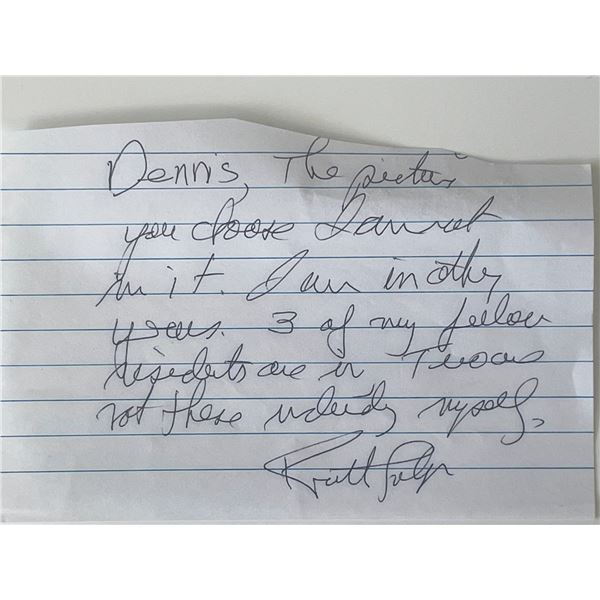 Dennis, The picture
you choose I am not
in it. I am in other
years. 3 of my fellow
residents are in
not there myself.